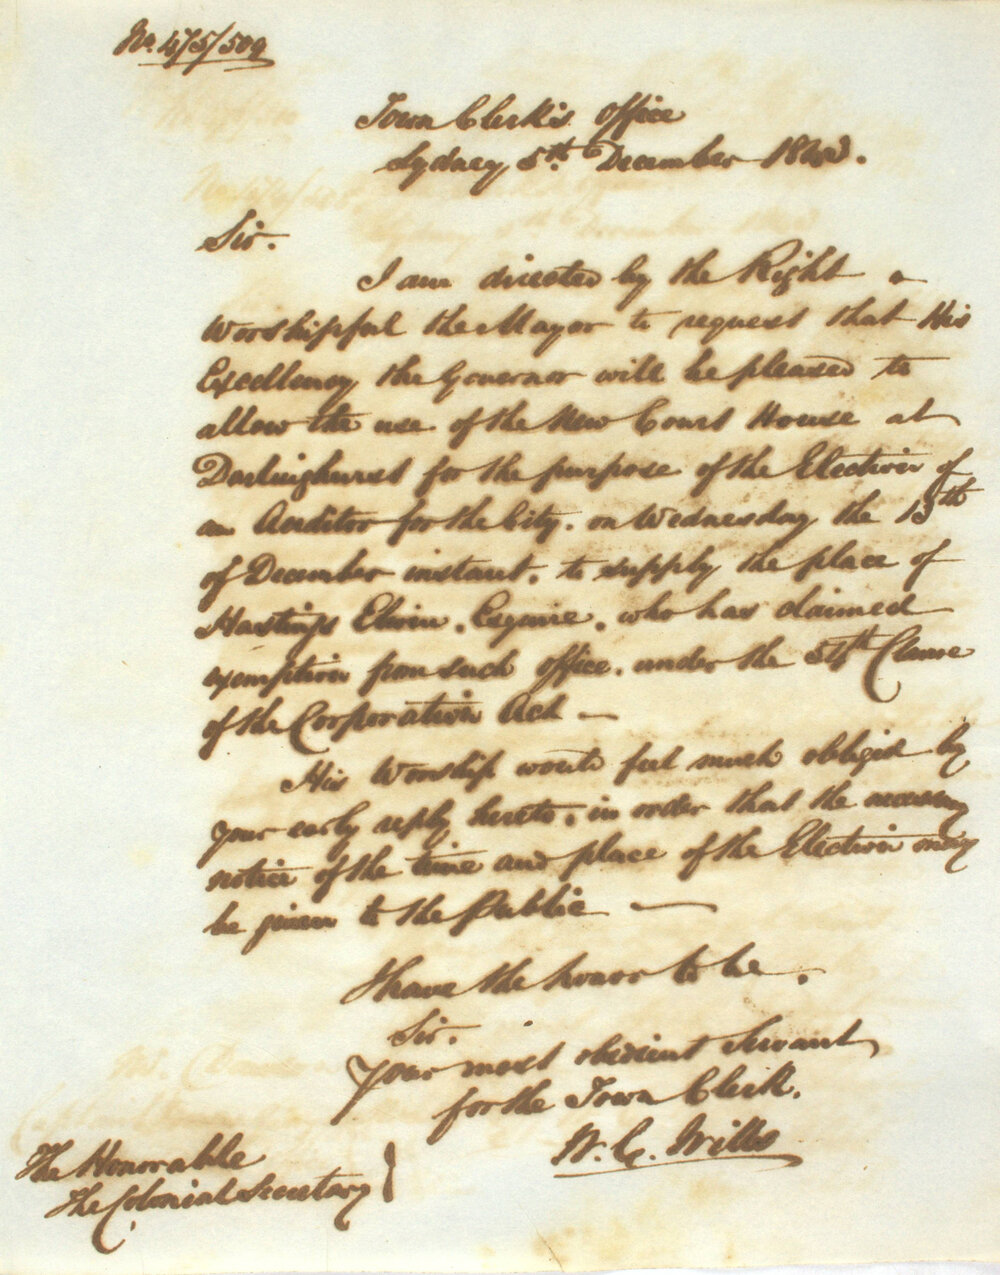 No. 43/509
Town Clerk's Office
Sydney 5th December 1843.
Sir.
I am directed by the Right
Worshipful the Mayor to request that His
Excellency the Governor will be pleased to
allow the use of the New Court House at
Darlinghurst for the purpose of the Election of
an Auditor for the City. on Wednesday the 13th
of December instant. to supply the place of
Hastings Elwin. Esquire. who has claimed
exemption from such office. under the 54th Clause
of the Corporation Act —
His Worship would feel much obliged by
your early reply hereto. in order that the necessary
notice of the time and place of the Election may
be given to the Public —
I have the honor to be.
Sir.
Your most obedient Servant
for the Town Clerk.
W. C. Wills
The Honorable
The Colonial Secretary